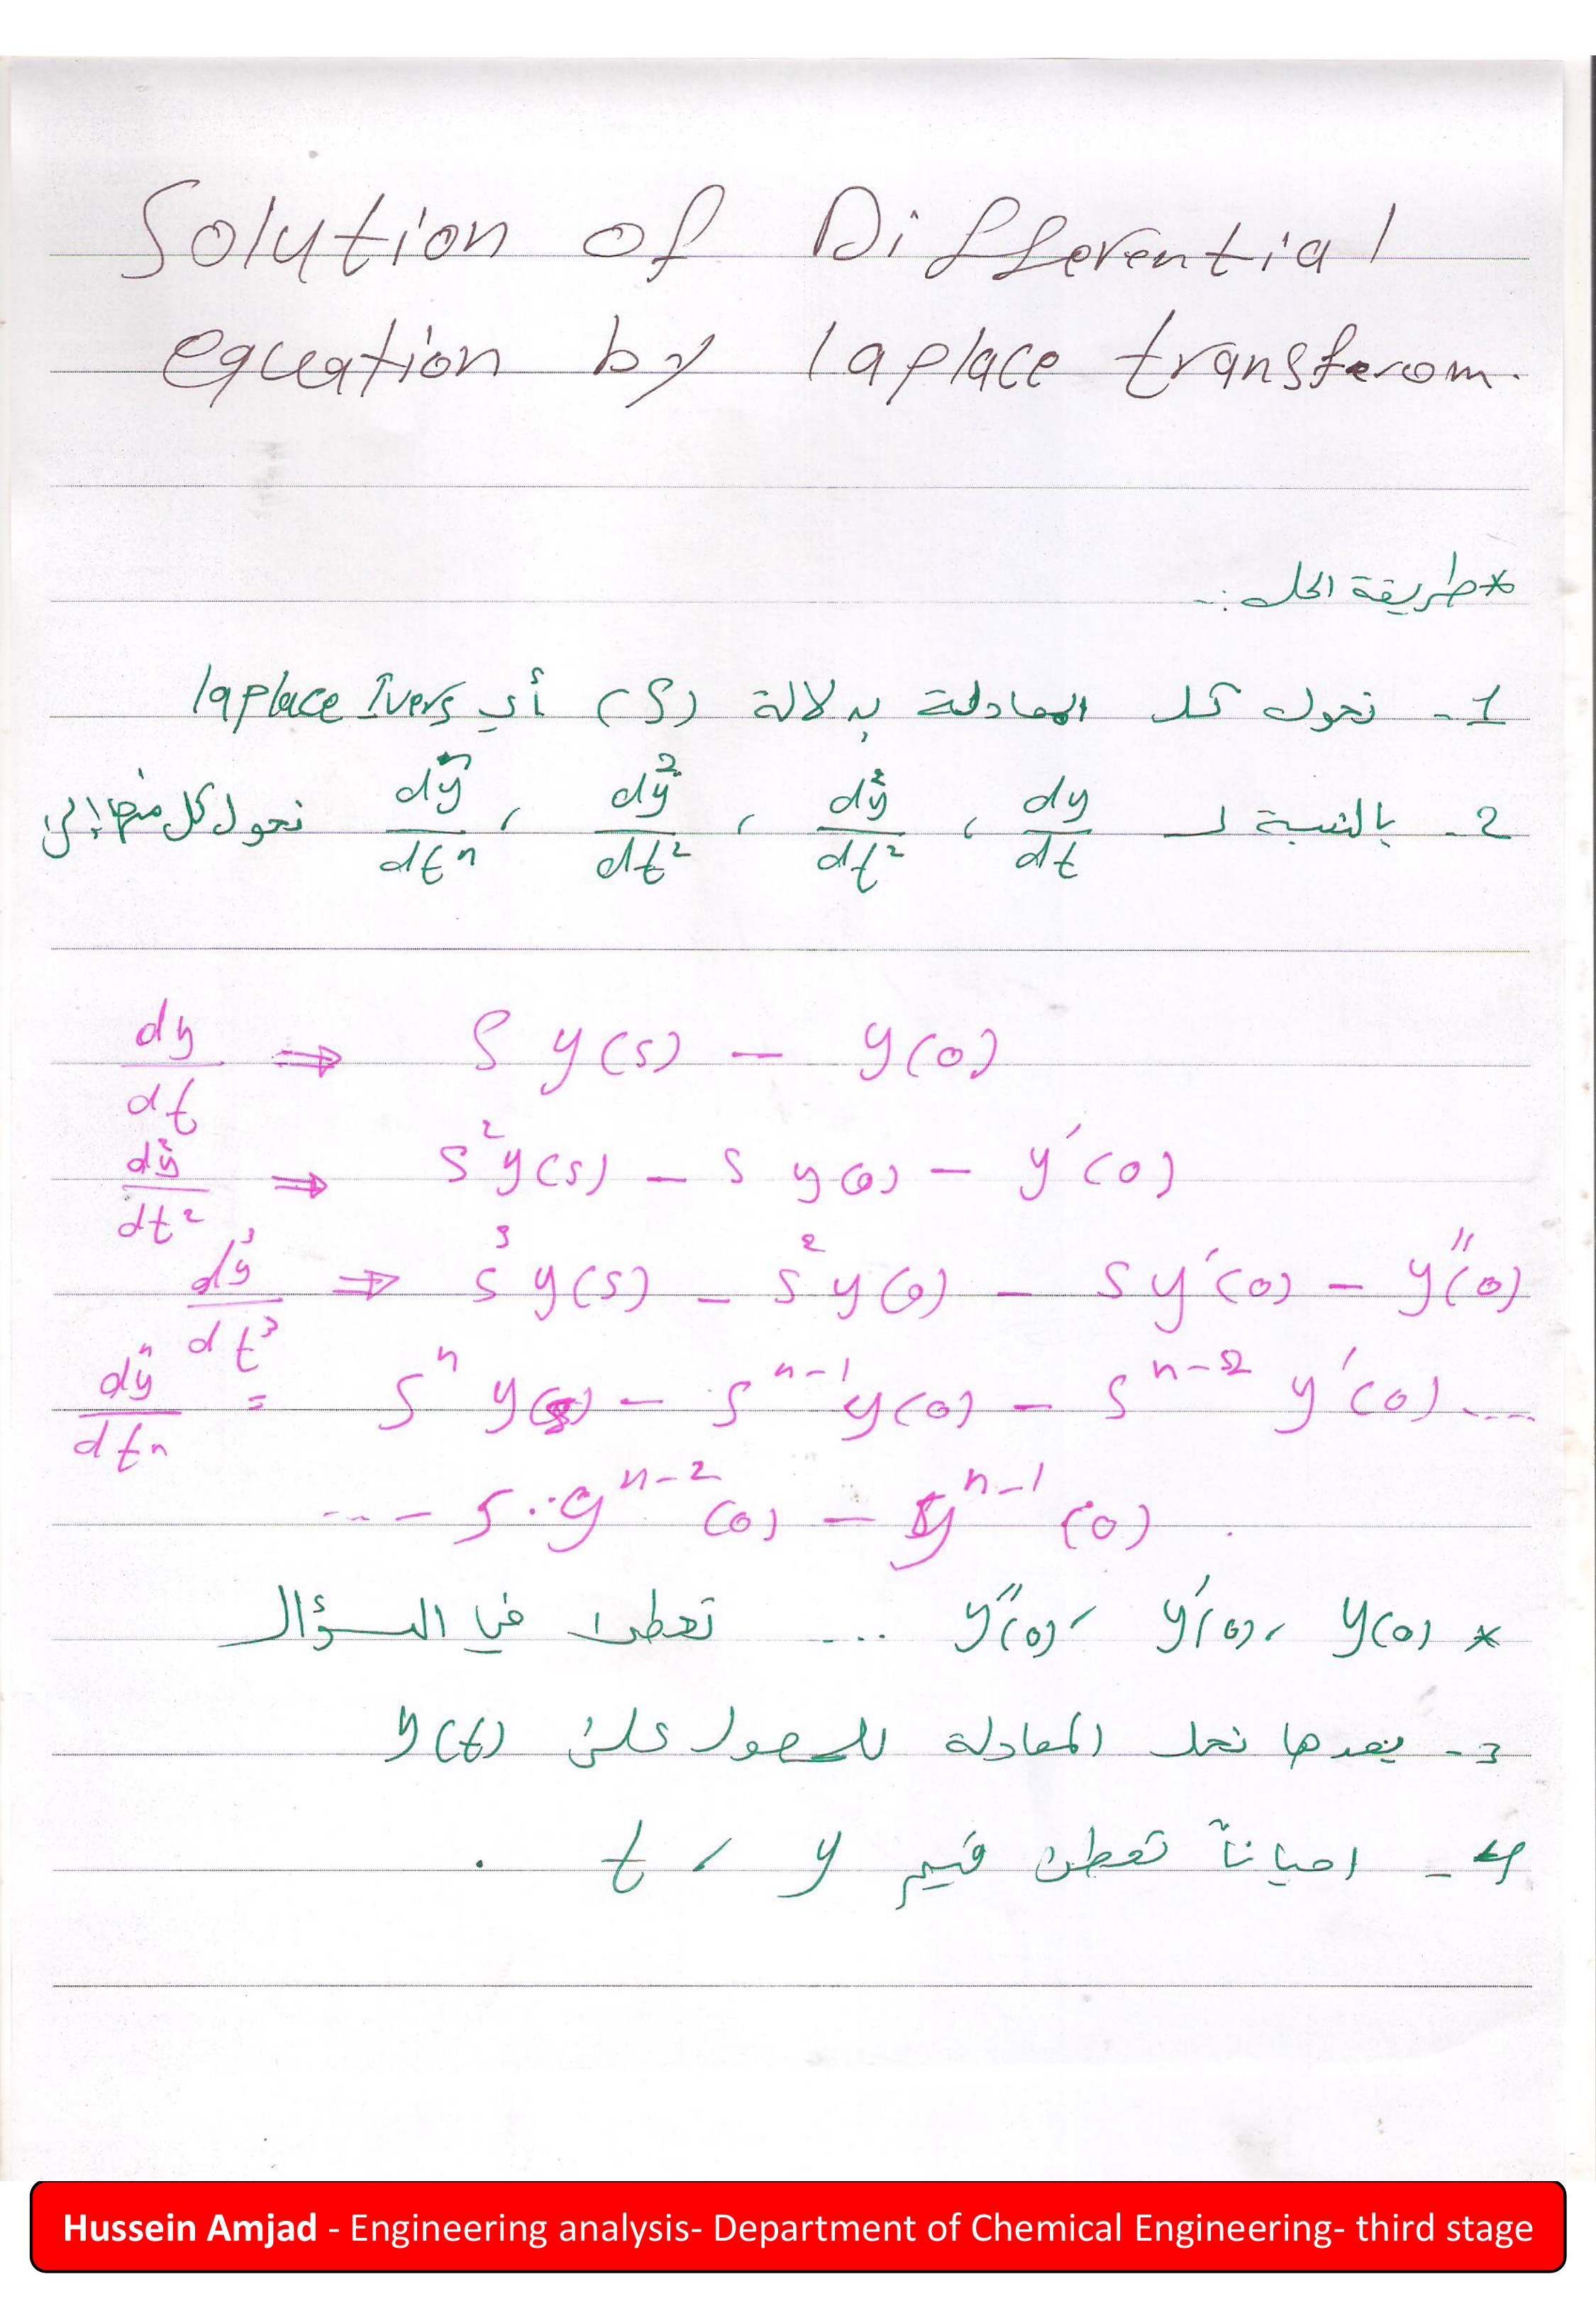 Solution of Differential
equation by laplace transferom.
* طريقة الحل :-
1- نحول كل المعادلة بدلالة (S) أي laplace Ivers
2- بالنسبة لـ dy/dt ، d²y/dt² ، d²y/dt² ، dⁿy/dtⁿ نحول كل منها إلى
dy/dt ⇒ S y(s) – y(0)
d²y/dt² ⇒ S²y(s) – S y(0) – y′(0)
d³y/dt³ ⇒ S³ y(s) – S² y(0) – S y′(0) – y″(0)
dⁿy/dtⁿ = Sⁿ y(s) – Sⁿ⁻¹ y(0) – Sⁿ⁻² y′(0) ....
... – S . yⁿ⁻²(0) – yⁿ⁻¹(0)
* y(0) ، y′(0) ، y″(0) ... تعطى في السؤال
3- بعدها نحل المعادلة للحصول على y(t)
4- احياناً تعطى قيم y ، t .
Hussein Amjad - Engineering analysis- Department of Chemical Engineering- third stage